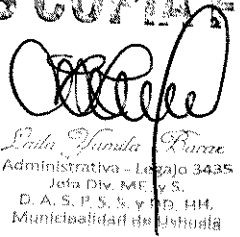 COPIA
Administrativa - Legajo 3435
Jefa Div. ME. y S.
D. A. S. P. S. S. y DD. HH.
Municipalidad de Ushuaia